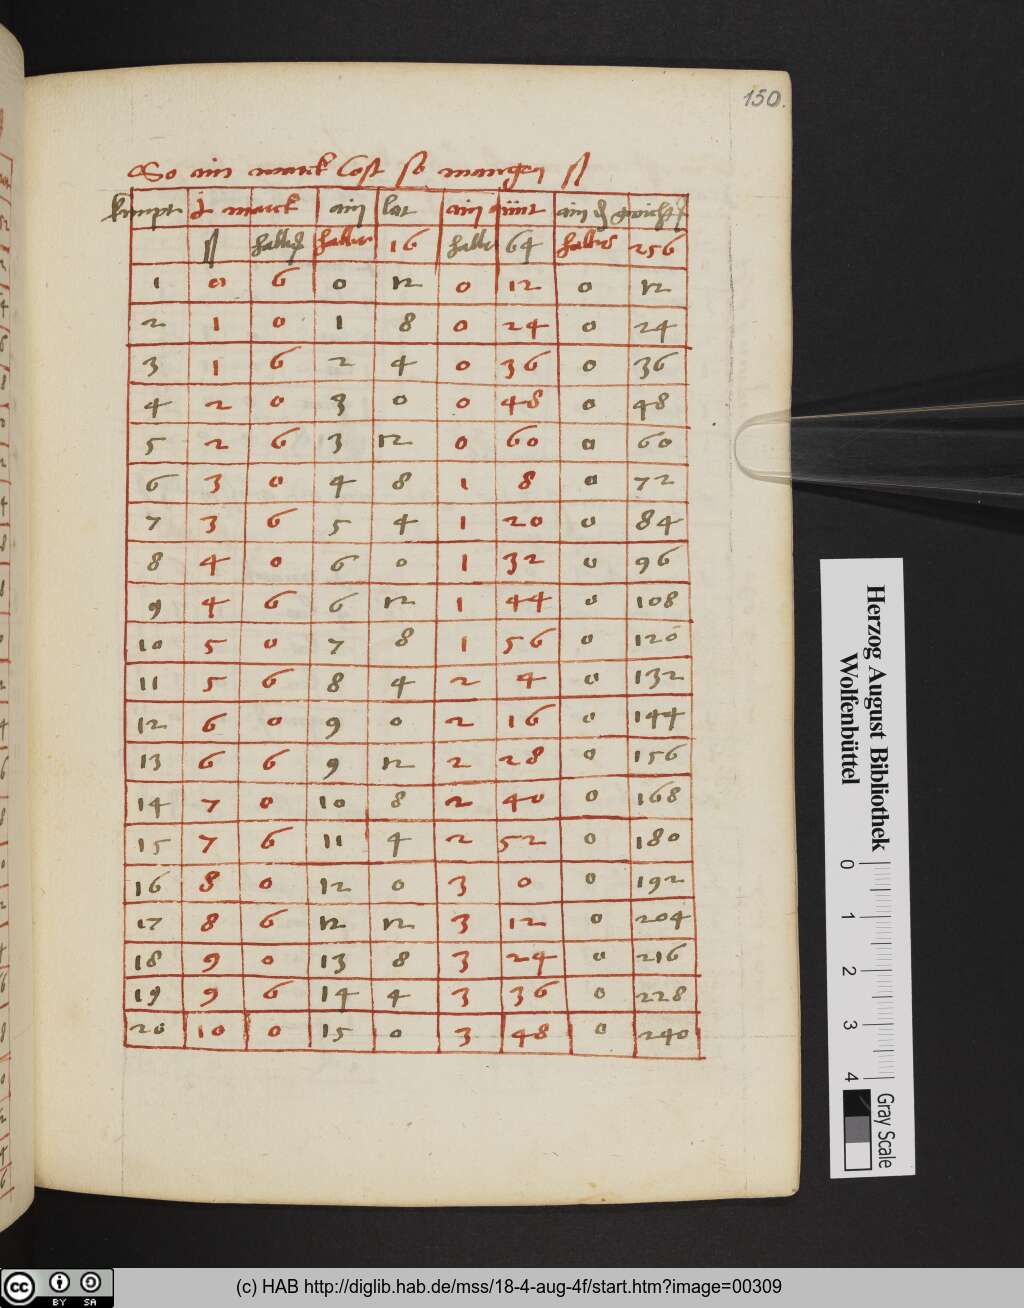 150.
So ain marck cost so manger ß
kumpt ½ marck ain lot ain quint ain gwicht
ß haller haller 16 haller 64 haller 256
1 0 6 0 12 0 12 0 12
2 1 0 1 8 0 24 0 24
3 1 6 2 4 0 36 0 36
4 2 0 3 0 0 48 0 48
5 2 6 3 12 0 60 0 60
6 3 0 4 8 1 8 0 72
7 3 6 5 4 1 20 0 84
8 4 0 6 0 1 32 0 96
9 4 6 6 12 1 44 0 108
10 5 0 7 8 1 56 0 120
11 5 6 8 4 2 4 0 132
12 6 0 9 0 2 16 0 144
13 6 6 9 12 2 28 0 156
14 7 0 10 8 2 40 0 168
15 7 6 11 4 2 52 0 180
16 8 0 12 0 3 0 0 192
17 8 6 12 12 3 12 0 204
18 9 0 13 8 3 24 0 216
19 9 6 14 4 3 36 0 228
20 10 0 15 0 3 48 0 240
Herzog August Bibliothek
Wolfenbüttel
0 1 2 3 4
Gray Scale
cc BY SA
(c) HAB http://diglib.hab.de/mss/18-4-aug-4f/start.htm?image=00309